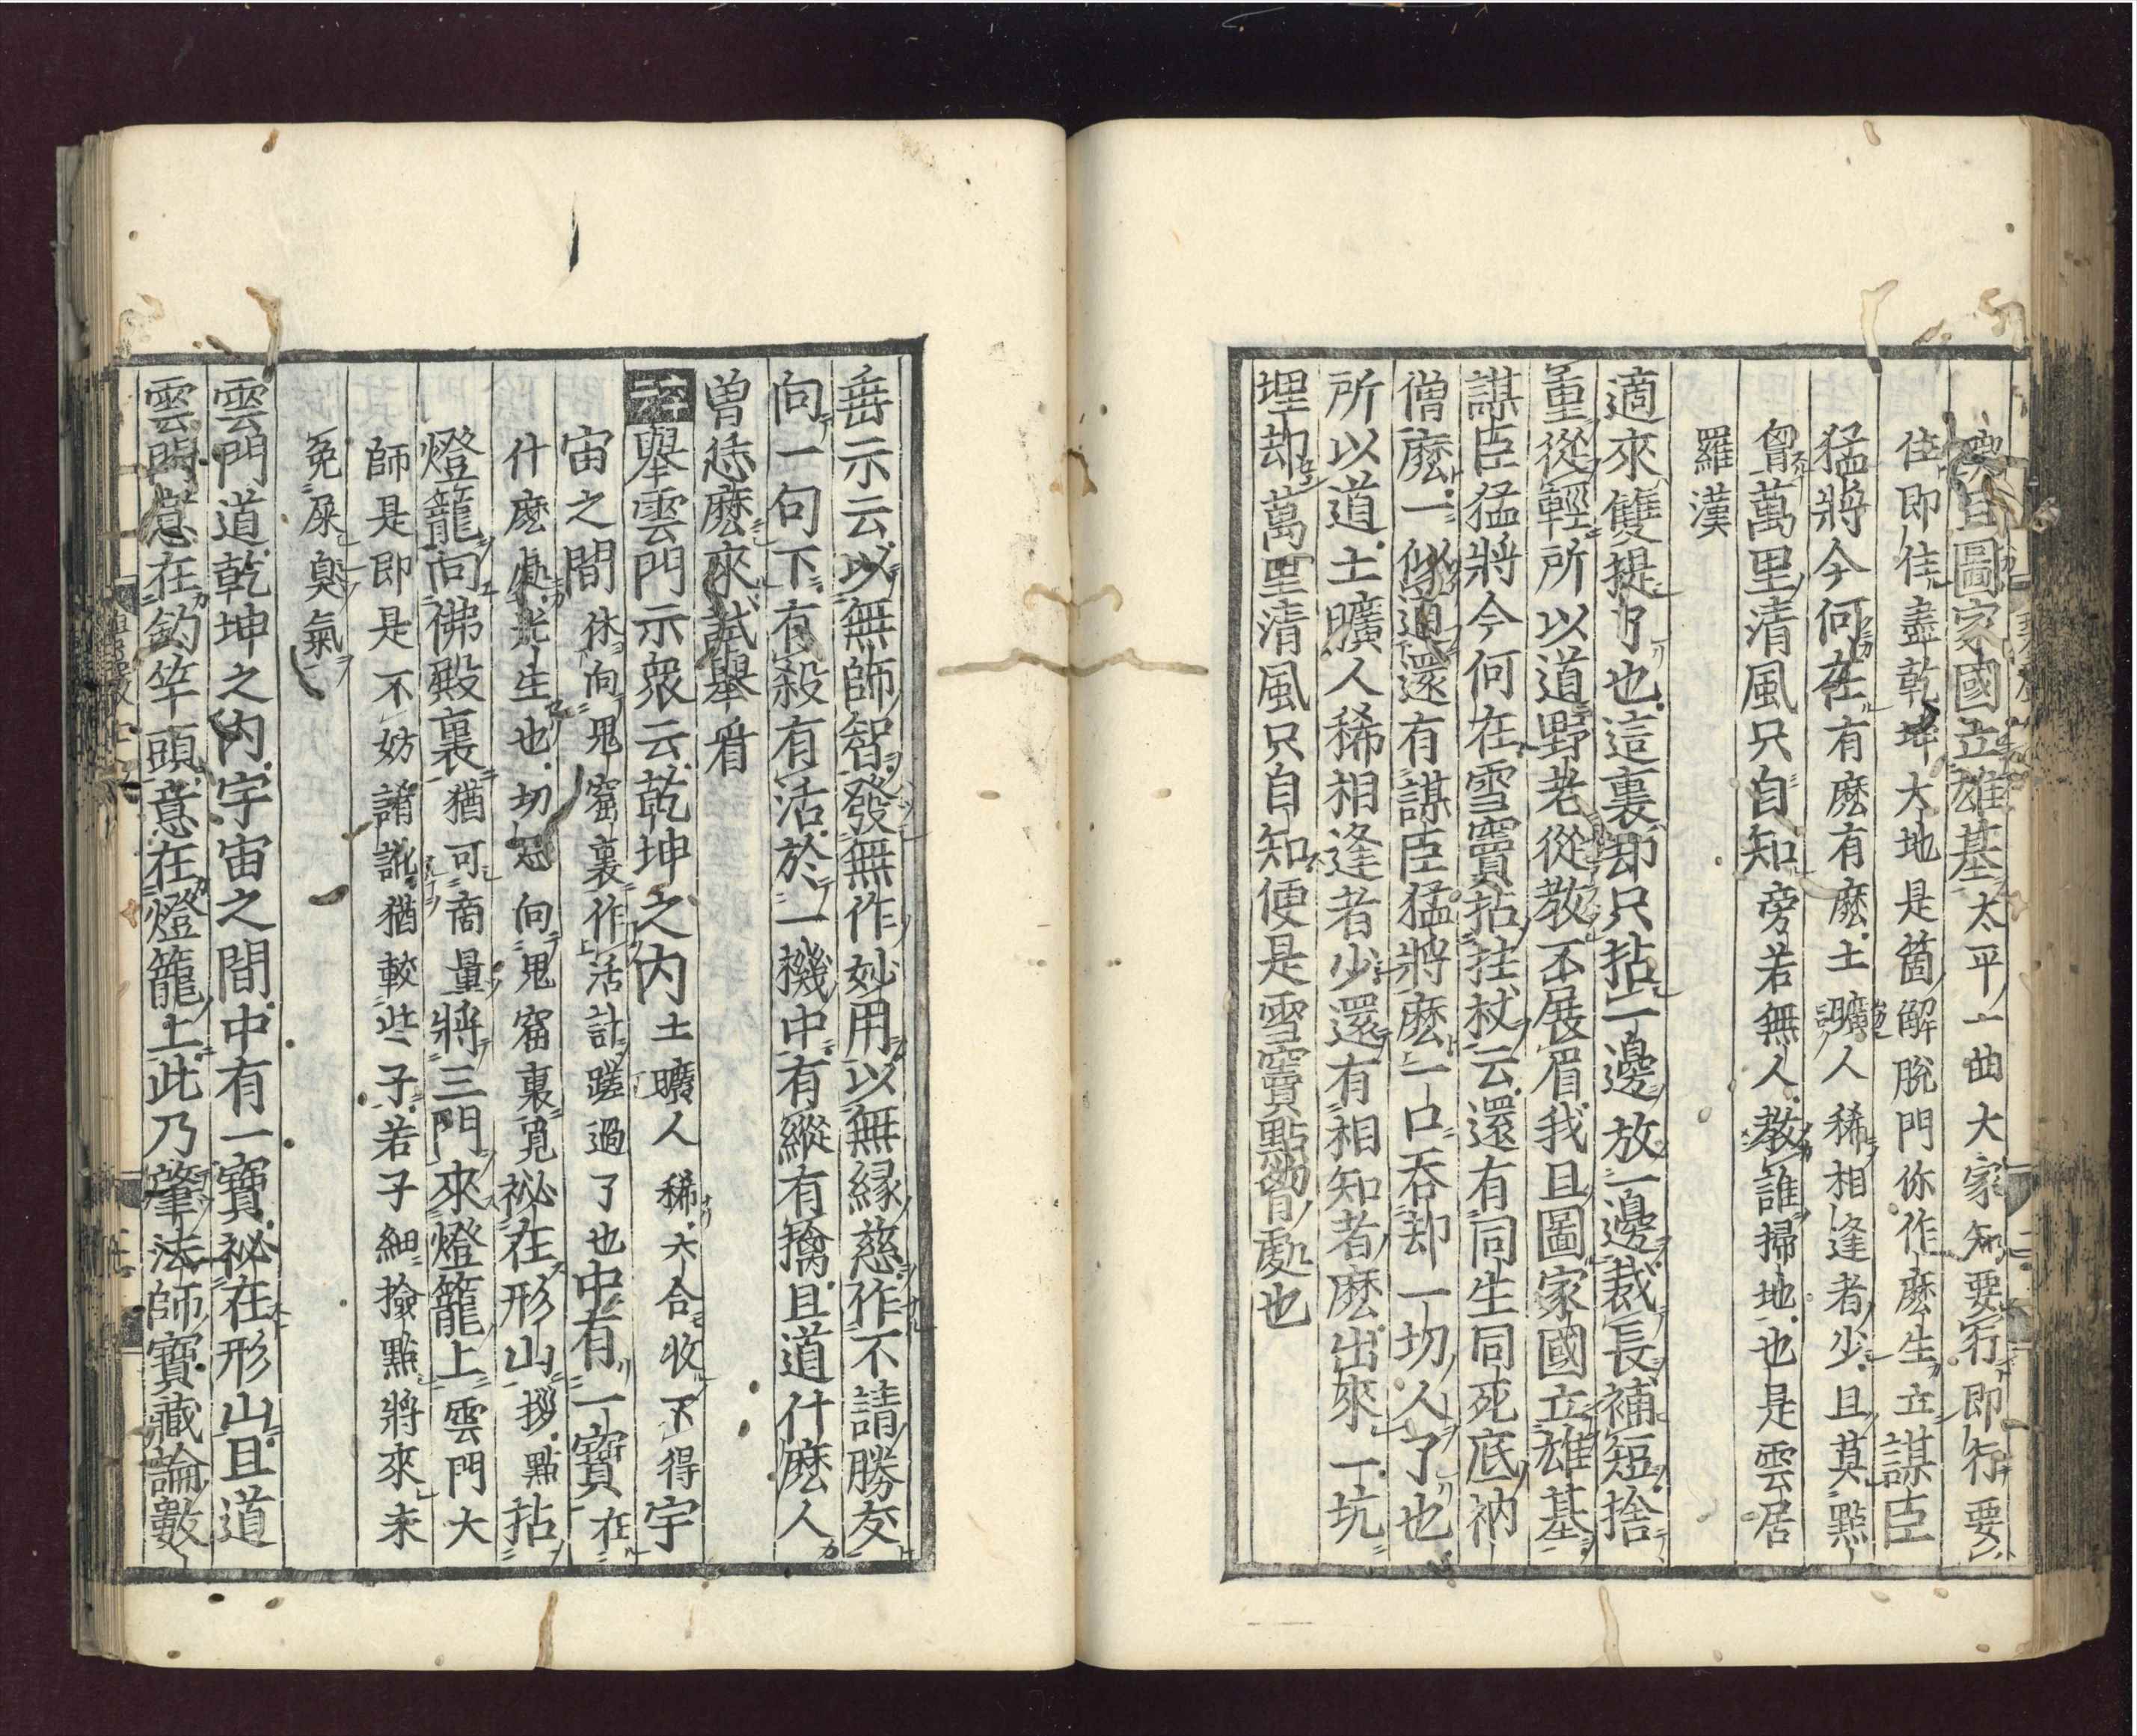 且圖家國立雄基太平一曲大家知要行即行要
住即住盡乾坤大地是箇解脫門你作麽生立謀臣
猛將今何在有麽有麽土曠人稀相逢者少且莫點
胷萬里清風只自知旁若無人教誰掃地也是雲居
羅漢
適來雙提了也這裏却只拈一邊放一邊裁長補短捨
重從輕所以道野老從教不展眉我且圖家國立雄基
謀臣猛將今何在雪竇拈拄杖云還有同生同死底衲
僧麽一似道還有謀臣猛將麽一口吞却一切人了也
所以道土曠人稀相逢者少還有相知者麽出來一坑
埋却萬里清風只自知便是雪竇點胷處也
垂示云以無師智發無作妙用以無緣慈作不請勝友
向一句下有殺有活於一機中有縱有擒且道什麽人
曾恁麽來試舉看
舉雲門示衆云乾坤之內土曠人稀六合收不得宇
宙之間休向鬼窟裏作活計蹉過了也中有一寶在
什麽處光生也切忌向鬼窟裏覓祕在形山拶點拈
燈籠向佛殿裏猶可商量將三門來燈籠上雲門大
師是即是不妨誵訛猶較些子若子細撿點將來未
免屎臭氣
雲門道乾坤之內宇宙之間中有一寶祕在形山且道
雲門意在釣竿頭意在燈籠上此乃肇法師寶藏論數